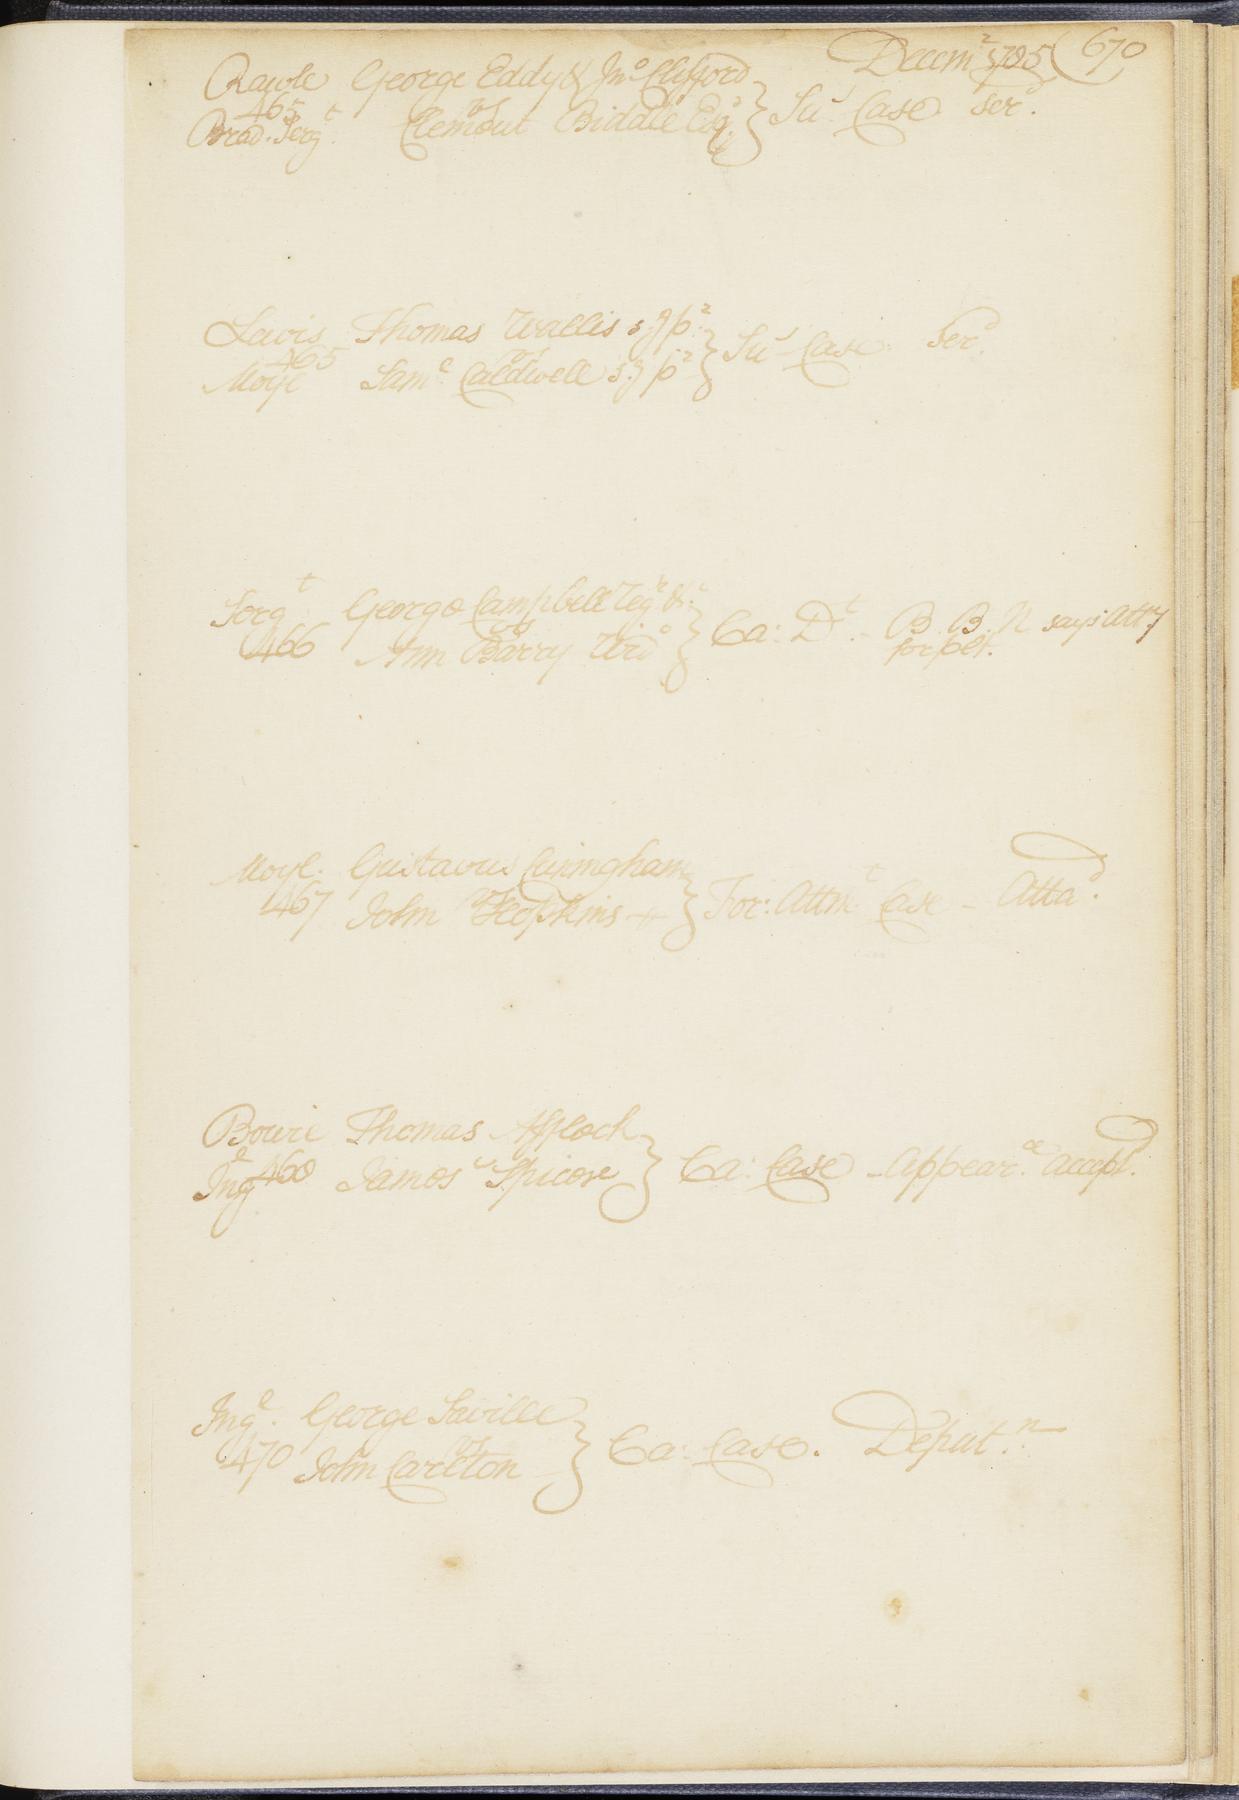 Decem.r 1785 (670
Rawle George Eddy & Jno Clifford
465 vs } Su Case Ser.d
Brad. Serg.t Clemont Biddle Esq.r
Lewis Thomas Wallis s.g p.r
465 vs } Su Case Ser.d
Moyl Sam.l Caldwell s.g p.r
Serg.t George Campbell Reg.r &c
466 vs } Ca: D.t - B B N says Att.ny
Ann Barry Wid.o for plt.
Moyl. Gustavus Cuningham
467 vs } For: Attm.t Case - Atta.d
John Hopkins
Bowie Thomas Affloch
v } Ca: Case - Appear.ce accept.d
Ing.l 460 James Spicer
Ing.l George Saville
470 vs } Ca: Case. Deput.n
John Carlton